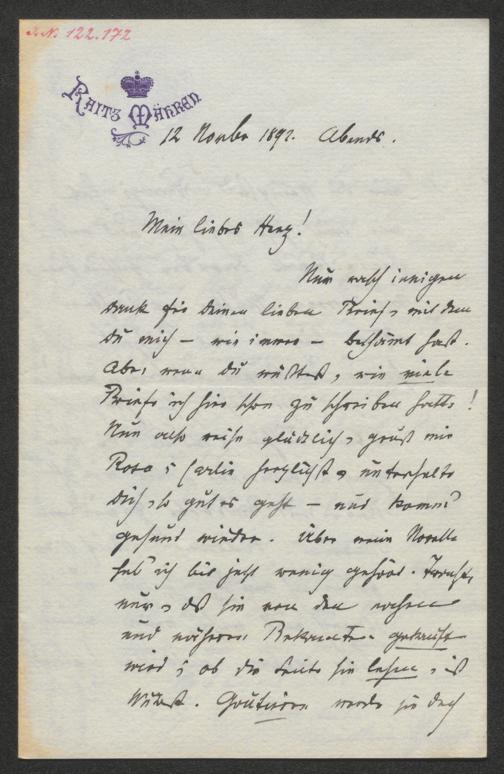 I. N. 122.172
RAITZ MÄHREN
12 Novbr 1892. Abends.
Mein liebes Herz!
Nur rasch innigen
Dank für Deinen lieben Brief, mit dem
Du mich – wie immer – beschämt hast.
Aber wenn Du wüßtest, wie viele
Briefe ich hier schon zu schreiben hatte!
Nun also reise glücklich, grüß mir
Rosa & Carlin herzlichst, unterhalte
Dich, so gut es geht – und komm'
gesund wieder. Über meine Novelle
hab' ich bis jetzt wenig gehört.
nur, daß sie von den
und näheren Bekannten gekauft
wird; ob die Leute sie lesen, ist
Goutieren werden sie doch